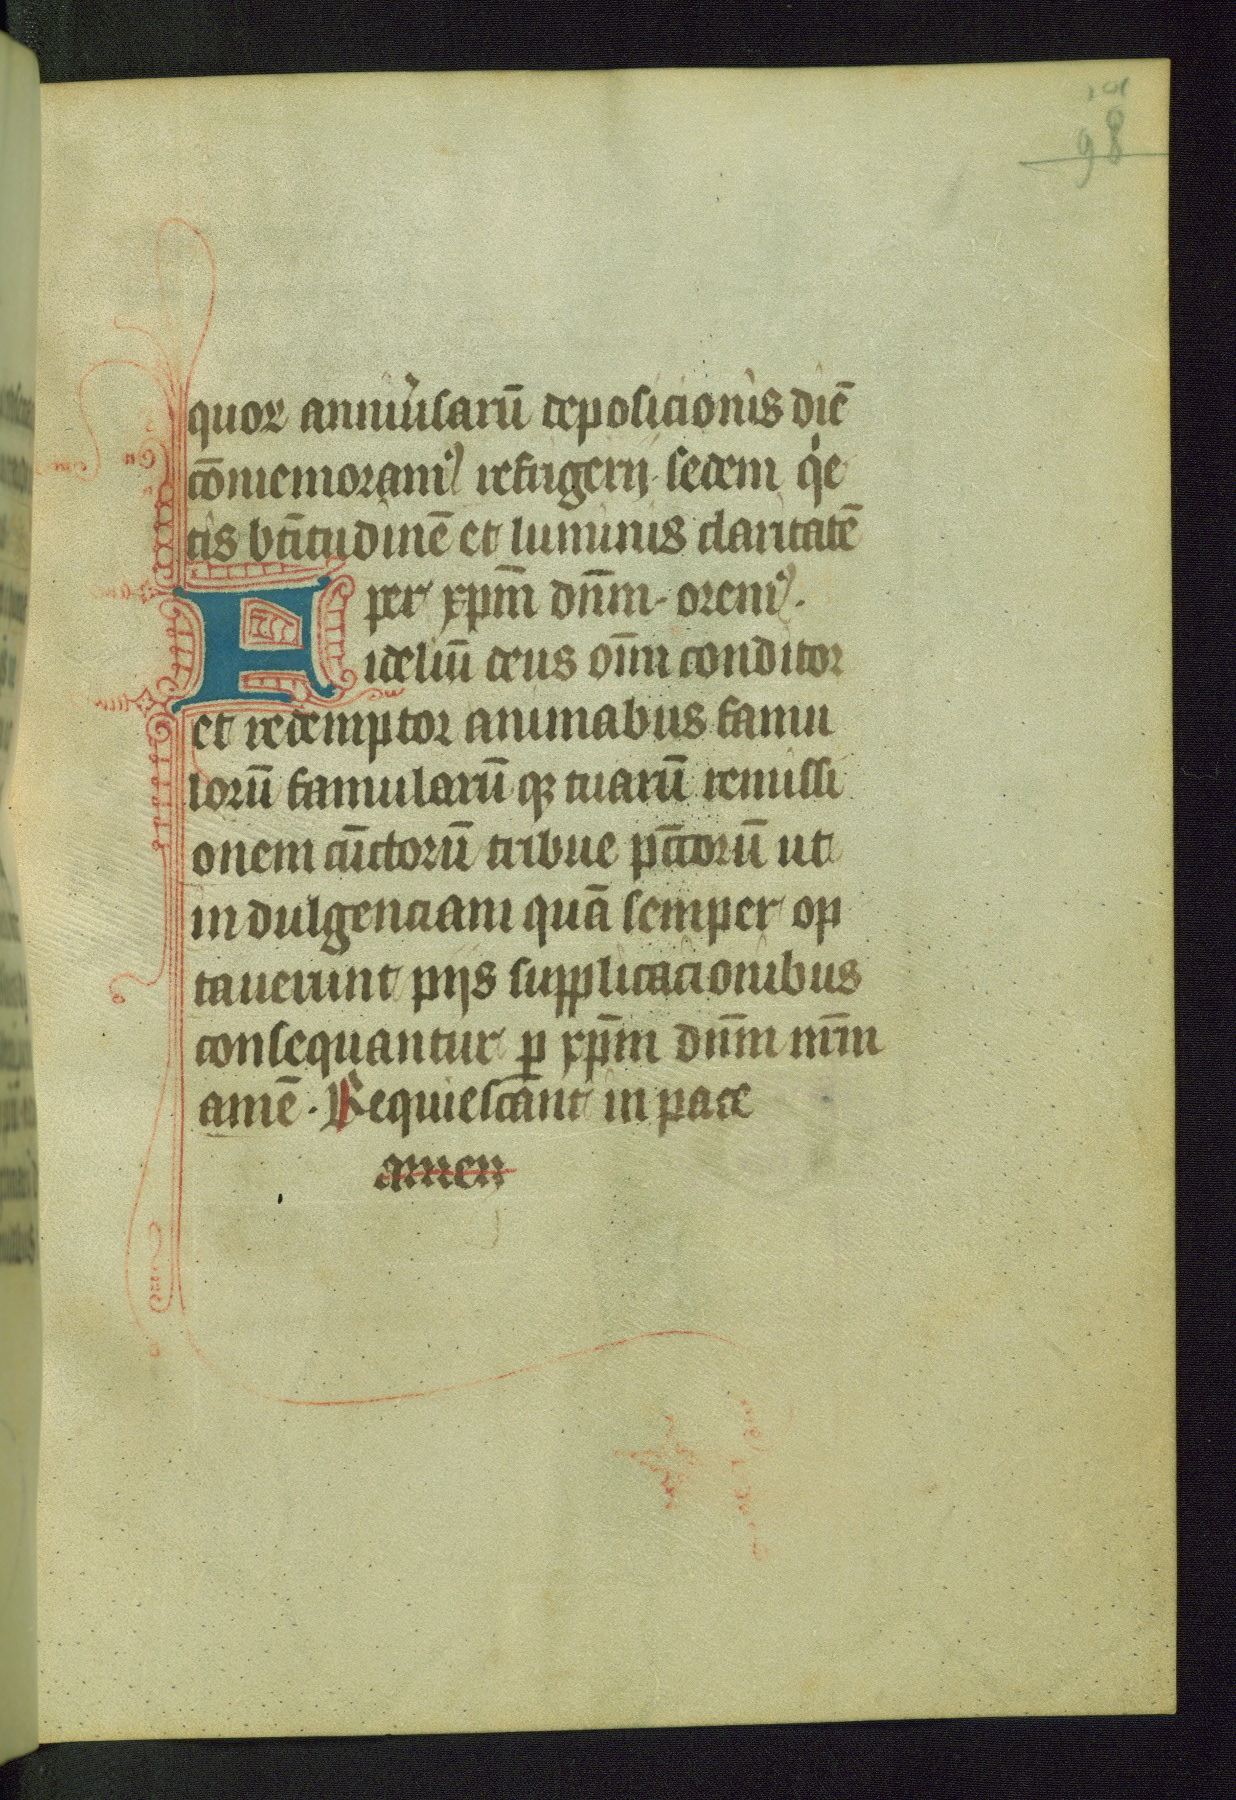 101
98
quor anniu͛sarū deposicionis diē
cōmemoramꝰ refrigerij sedem qͥe
tis bt̄itudinē et luminis claritatē
per xp̄m dn̄m oremꝰ.
Fideliū deus oīm conditor
et redemptor animabus famu
lorū famularū qꝫ tuarū remissi
onem cūctorū tribue pc̄torū ut
in dulgenciam quā semper op
tauerunt pijs supplicacionibus
consequantur ꝑ xp̄m dn̄m nr̄m
amē. Requiescant in pace
amen